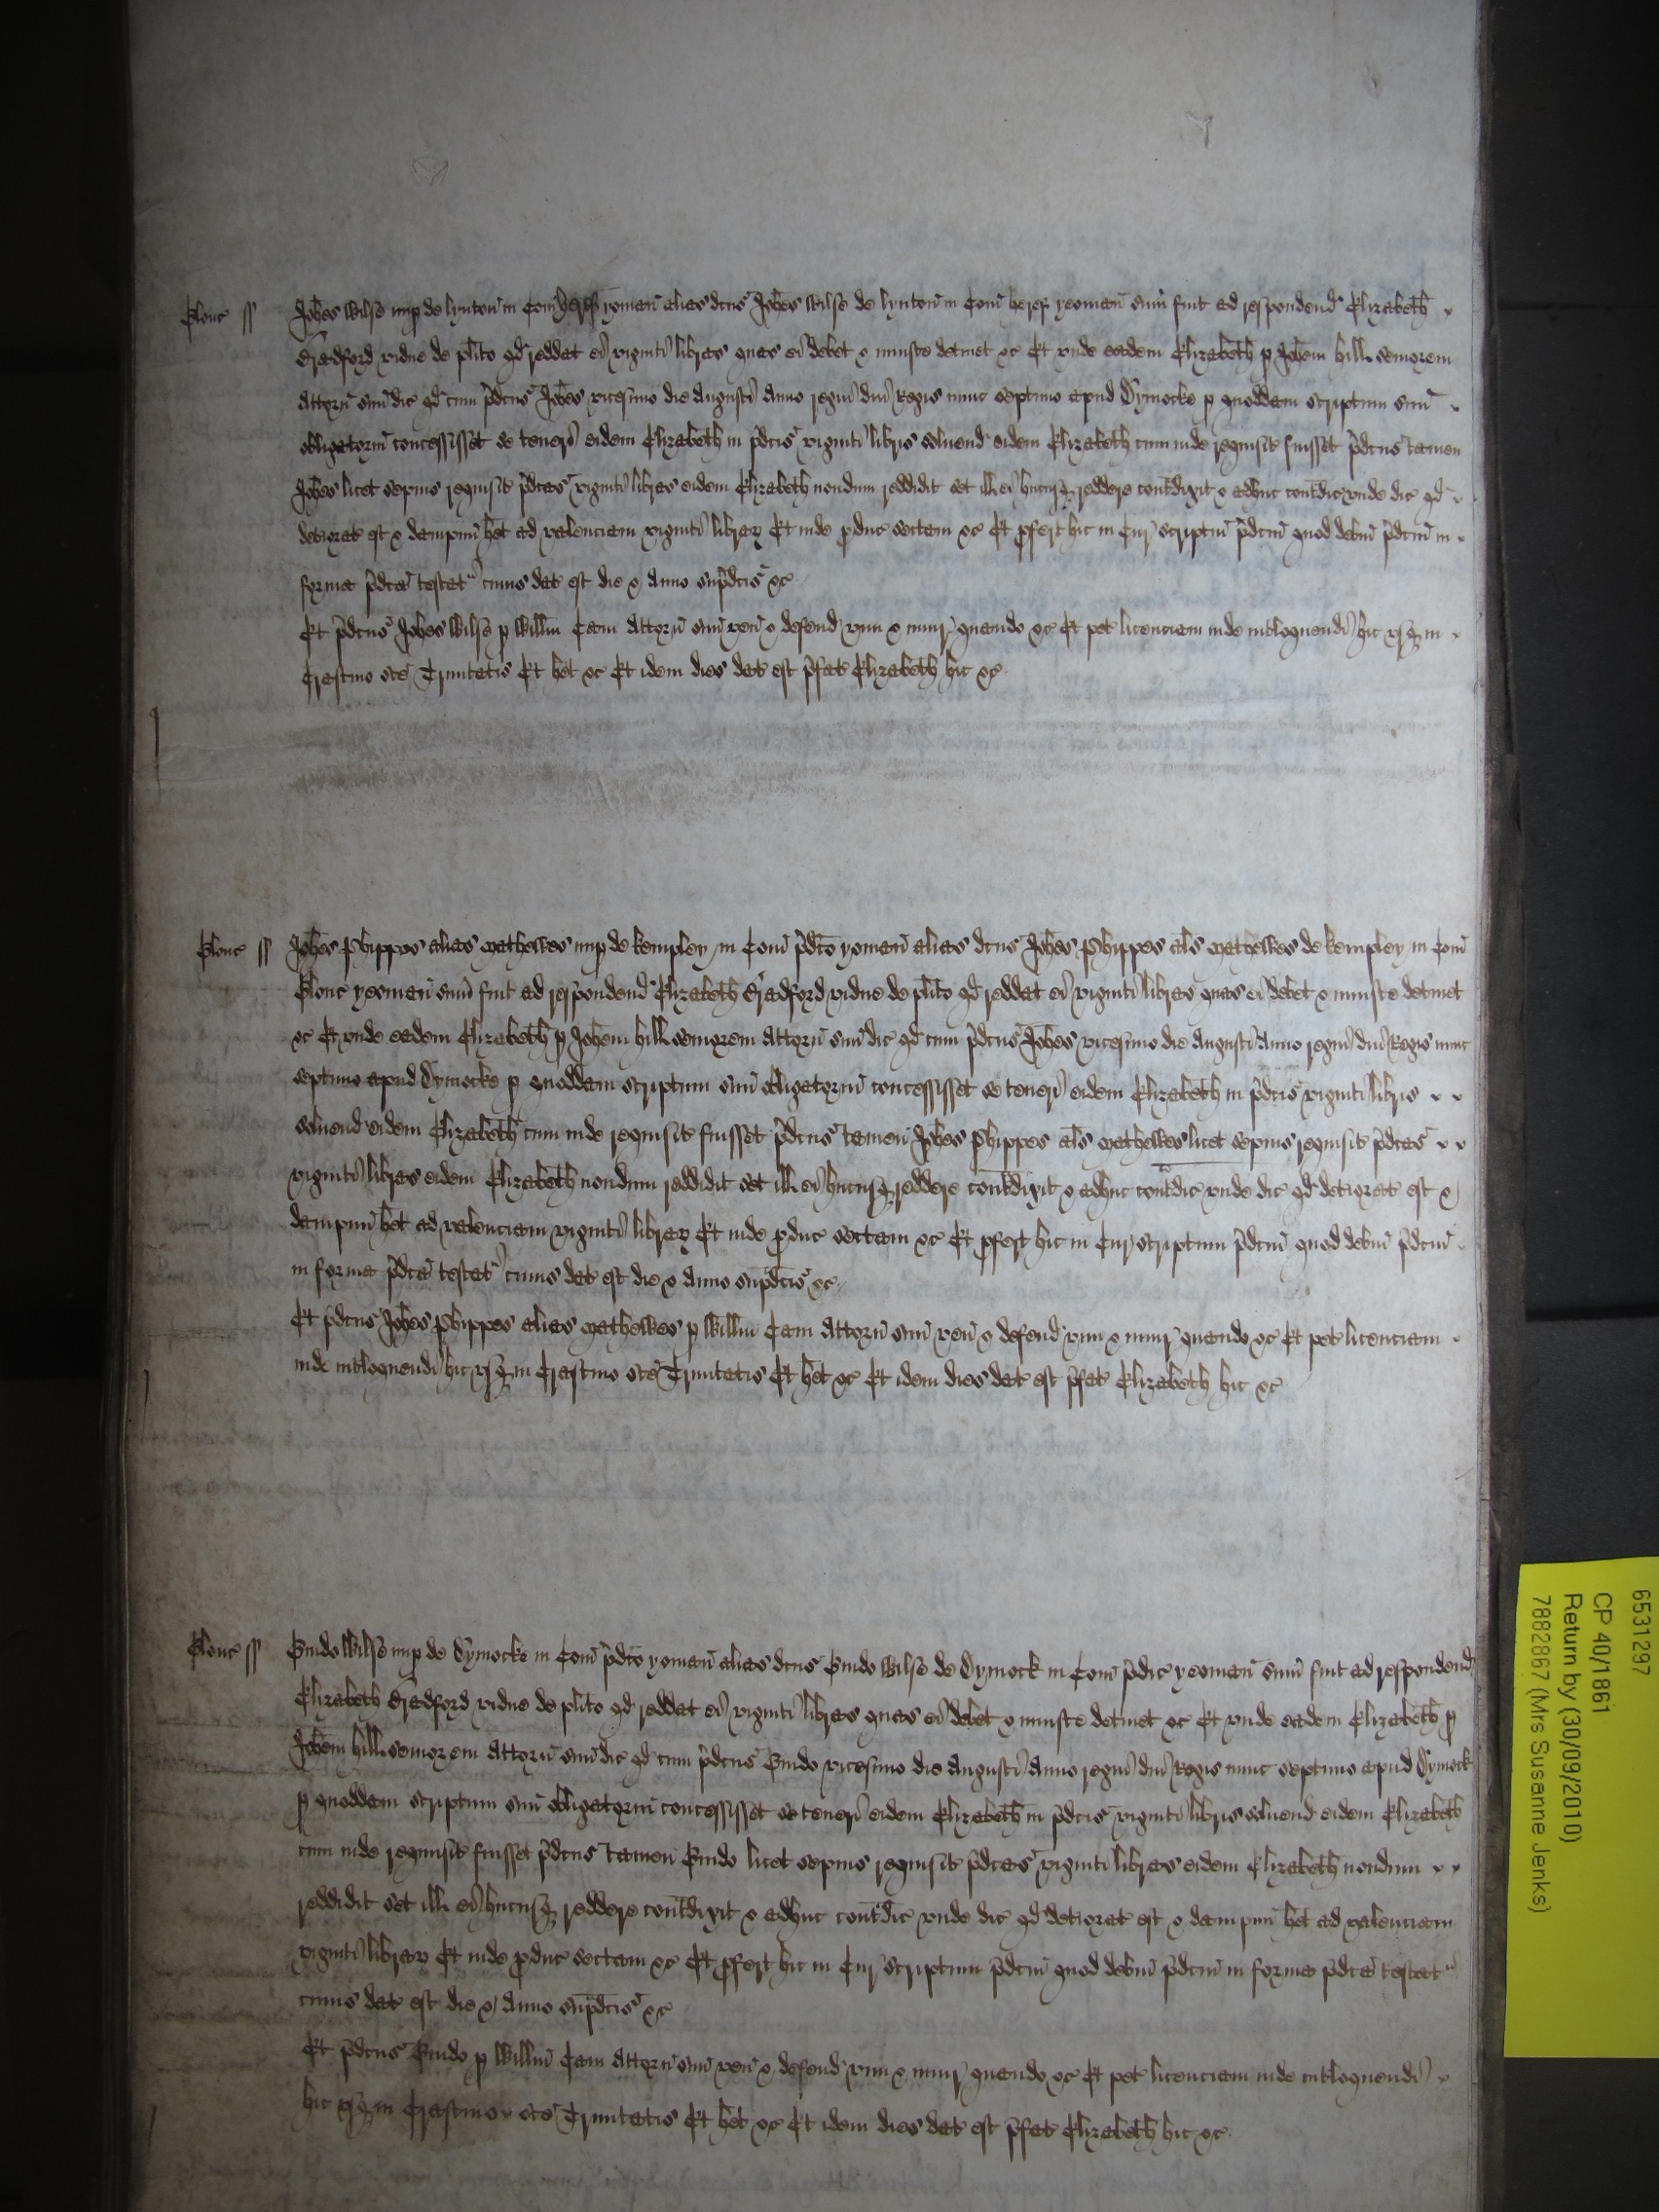 Glouc ss Joh̄es Wilse nup de lynton in Com̄ Heref yoman̄ alias dc̄us Joh̄es Wilse de lynton in Com̄ heref yeoman̄ sum̄ fuit ad respondend Elizabeth
Bradford vidue de pl̄ito qd reddat ei viginti libras quas ei debet & iniuste detinet &c Et unde eadem Elizabeth p Joh̄em hill seniorem
Attorn̄ suū dic qd cum p̄dc̄us Joh̄es vicesimo die Augusti Anno regni dn̄i Regis nunc septimo apud Dymocke p quoddam scriptum suū
obligatoriū concessisset se teneri eidem Elizabeth in p̄dc̄is viginti libris solvend eidem Elizabeth cum inde requisit fuisset p̄dc̄us tamen
Joh̄es licet sepius requisit p̄dc̄as viginti libras eidem Elizabeth nondum reddidit set ill ei hucusq reddere cont̄dixit & adhuc cont̄dic unde dic qd
deteriorat est & dampnū h̄et ad valenciam viginti librar Et inde p̄duc sectam &c Et p̄fert hic in Cur scriptū p̄dc̄ū quod debitū p̄dc̄ū in
forma p̄dc̄a testat cuius dat est die & Anno sup̄dc̄is &c
Et p̄dc̄us Joh̄es Wilse p Willm̄ Cam Attorn̄ suū ven̄ & defend vim & iniur quando &c Et pet licenciam inde int̄loquendi hic usq in
Crastino sc̄e Trinitatis Et h̄et &c Et idem dies dat est p̄fat Elizabeth hic &c
Glouc ss Joh̄es Phippes alias Mathewes nup de kempley in Com̄ p̄dc̄o yoman̄ alias dc̄us Joh̄es Phippes al̄s Mathewes de kempley in Com̄
Glouc yeoman̄ sum̄ fuit ad respondend Elizabeth Bradford vidue de pl̄ito qd reddat ei viginti libras quas ei debet & iniuste detinet
&c Et unde eadem Elizabeth p Joh̄em hill seniorem Attorn̄ suū dic qd cum p̄dc̄us Joh̄es vicesimo die Augusti Anno regni dn̄i Regis nunc
septimo apud Dymocke p quoddam scriptum suū obligatoriū concessisset se teneri eidem Elizabeth in p̄dc̄is viginti libris
solvend eidem Elizabeth cum inde requisit fuisset p̄dc̄us tamen Joh̄es Phippes al̄s Mathewes licet sepius requisit p̄dc̄as
viginti libras eidem Elizabeth nondum reddidit set ill ei hucusq reddere cont̄dixit & adhuc cont̄dic unde dic qd deteriorat est &
dampnū h̄et ad valenciam viginti librar Et inde p̄duc sectam &c Et p̄fert hic in Cur scriptum p̄dc̄ū quod debitū p̄dc̄ū
in forma p̄dc̄a testat cuius dat est die & Anno sup̄dc̄is &c
Et p̄dc̄us Joh̄es Phippes alias Mathewes p Willm̄ Cam Attorn̄ suū ven̄ & defend vim & iniur quando &c Et pet licenciam
inde int̄loquendi hic usq in Crastino sc̄e Trinitatis Et h̄et &c Et idem dies dat est p̄fat Elizabeth hic &c
Glouc ss Guido Wilse nup de Dymocke in Com̄ p̄dc̄o yoman̄ alias dc̄us Guido Wilse de Dymock in Com̄ p̄dic yeoman̄ sum̄ fuit ad respondend
Elizabeth Bradford vidue de pl̄ito qd reddat ei viginti libras quas ei debet & iniuste detinet &c Et unde eadem Elizabeth p
Joh̄em hill seniorem Attorn̄ suū dic qd cum p̄dc̄us Guido vicesimo die Augusti Anno regni dn̄i Regis nunc septimo apud Dymock
p quoddam scriptum suū obligatoriū concessisset se teneri eidem Elizabeth in p̄dc̄is viginti libris solvend eidem Elizabeth
cum inde requisit fuisset p̄dc̄us tamen Guido licet sepius requisit p̄dc̄as viginti libras eidem Elizabeth nondum
reddidit set ill ei hucusq reddere cont̄dixit & adhuc cont̄dic unde dic qd deteriorat est & dampnū h̄et ad valenciam
viginti librar Et inde p̄duc sectam &c Et p̄fert hic in Cur scriptum p̄dc̄ū quod debitū p̄dc̄ū in forma p̄dc̄a testat
cuius dat est die & Anno sup̄dc̄is &c
Et p̄dc̄us Guido p Willm̄ Cam Attorn̄ suū ven̄ & defend vim & iniur quando &c Et pet licenciam inde int̄loquendi
hic usq in Crastino sc̄e Trinitatis Et h̄et &c Et idem dies dat est p̄fat Elizabeth hic &c
6531297
CP 40/1861
Return by (30/09/2010)
7882867 (Mrs Susanne Jenks)